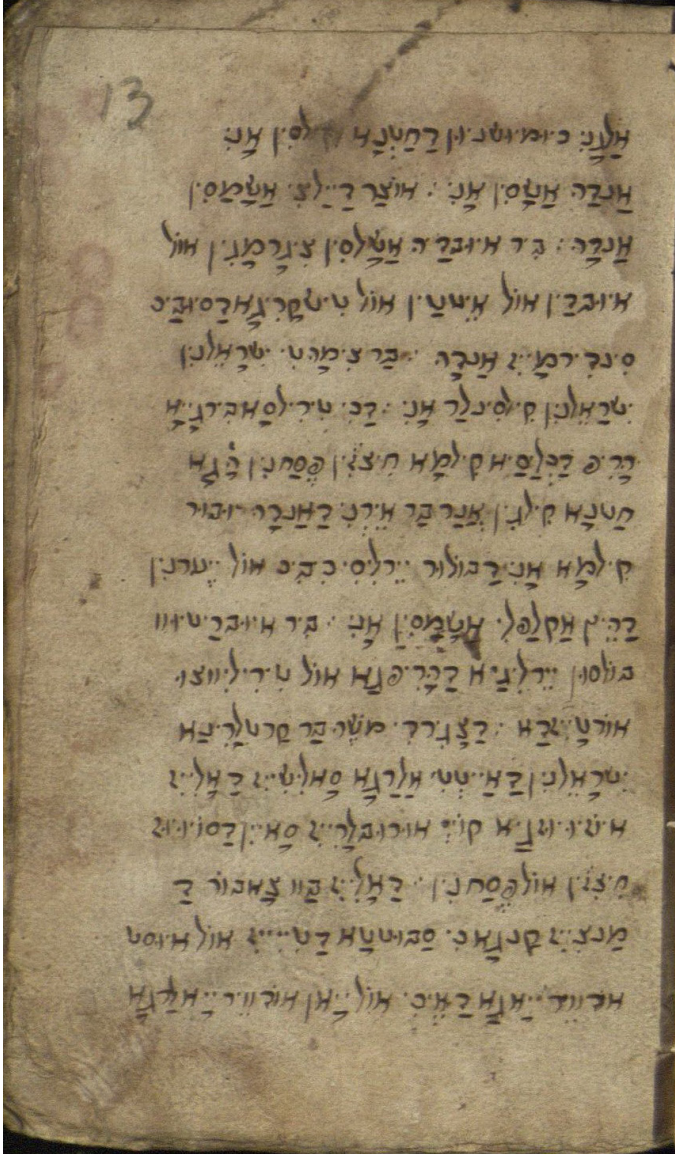 אָלְגָנִי כומושנון דַחַטְנָא קילסין אָנִי
אַנְדַה אַשָסִין אָנִי : אוצַר דַיַלְצִי אַשָמַסִין
אַנְדָה : בִיר איובדַה אַשָלסִין ציגרמָגִין אול
איובדַין אול אֵיטטַין אול טישקרִיגָא דַסוּבַיכ
סִינדִירמָיִיז אַנדָה : בַרצימַהטִי ישרָאֵלנִין
ישרָאֵלנִין קִילסִינלַר אָנִי : דַכִי טִירִילסָא בִירגָיָא
הָרִיפ דַקִלַסַיא קִילמָא חִיצזִין פֶסַחנִין הָגָא
חַטנָא קִילגִין אֲנַרבָר אֵירנִי דַאַנדָה יובוּר
קִילמָא אָנִי דַבולוּר יֵירלִיסִי כִיבִיכ אול יֵערנִין
דַהֵיץ אַקלַפלִי אַשָמָסִין אָנִי : בִיר איובדַטיוו
בולסון יֵירלִיגַיא דַהָרִיפגָא אול טִירִילִיווצוּ
אורטַייזדַא : דַצָגִירדִי מֹשֶה בַר קַרטלַרִינָא
ישרָאֵלנִין דַאַייטטִי אַלַרגָא סָאילִישִיז דַאָלִייז
איזיוּוּזגָיא קוֹיִ אוּרוּבלַרִייז סָאיין דַסוֹיוּז
חִיצזִין אול פֶסַחנִין : דַאָלִייז בַוו צָאבוֹר דַ
מַנציִיז קַנגָאכִי סַבוטטָא דַטִיייִיז אול איוּסט
אדוויר יאַנגָא דַאֵיכִי אול יָאן אודוויר יִיאַלַרגָא